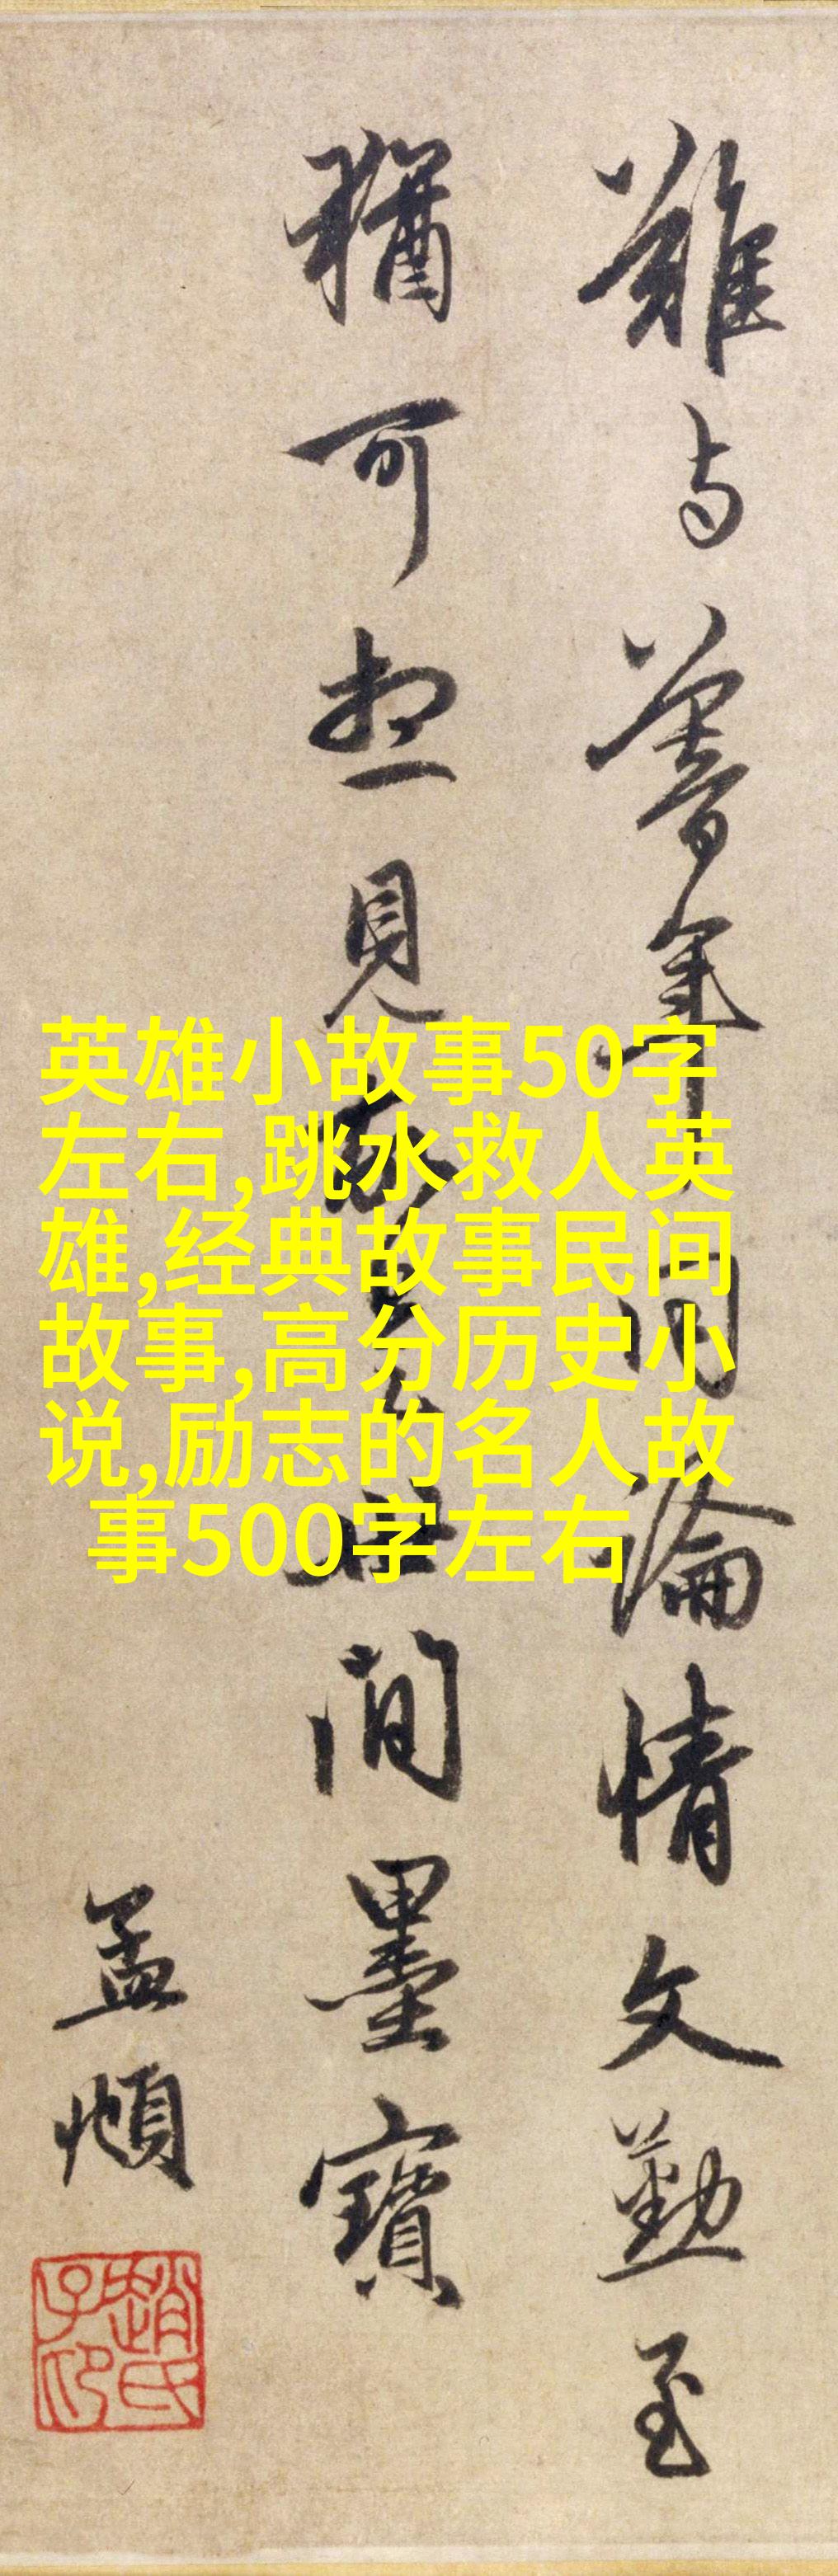 難与़暮年同論情文勤至
猶可想見故是世間墨寶
孟頫
趙氏子印
英雄小故事50字
左右,跳水救人英
雄,经典故事民间
故事,高分历史小
说,励志的名人故
事500字左右